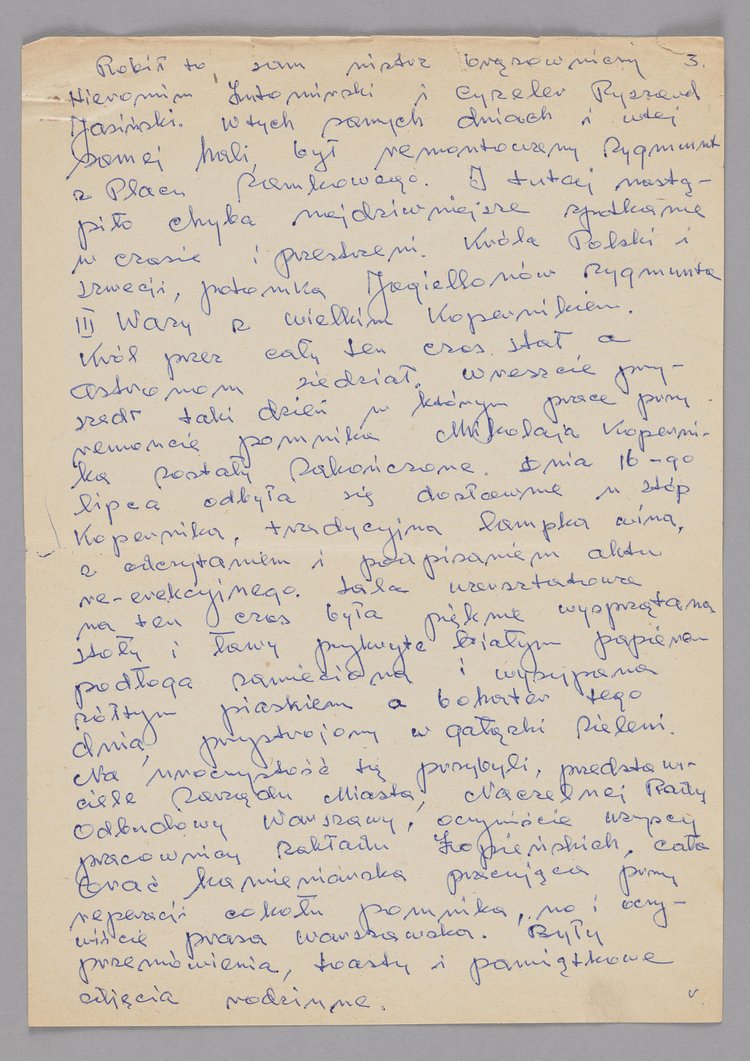 3.
Robił to, sam mistrz brązowniczy
Hieronim Żutomirski i cyzeler Ryszard
Jasiński. W tych samych dniach i w tej
samej hali, był remontowany Zygmunt
z Placu Zamkowego. I tutaj nastą-
piło chyba najdziwniejsze spotkanie
w czasie i przestrzeni. Króla Polski i
Szwecji, potomka Jagiellonów Zygmunta
III Wazy z wielkim Kopernikiem.
Król przez cały ten czas stał a
astronom siedział. Wreszcie przy-
szedł taki dzień w którym prace przy
remoncie pomnika Mikołaja Koperni-
ka zostały zakończone. Dnia 16-go
lipca odbyła się dosłownie u stóp
Kopernika, tradycyjna lampka wina,
z odczytaniem i podpisaniem aktu
re-erekcyjnego. Sala warsztatowa
na ten czas była pięknie wysprzątana
stoły i ławy przykryte białym papierem
podłoga zamieciona i wysypana
żółtym piaskiem a bohater tego
dnia, przystrojony w gałązki zieleni.
Na uroczystość tą przybyli, przedstawi-
ciele Zarządu Miasta, Naczelnej Rady
Odbudowy Warszawy, oczywiście wszyscy
pracownicy zakładu Łopieńskich, cała
brać kamieniarska pracująca przy
reperacji cokołu pomnika, no i oczy-
wiście prasa warszawska. Były
przemówienia, toasty i pamiątkowe
zdjęcia rodzinne.
v